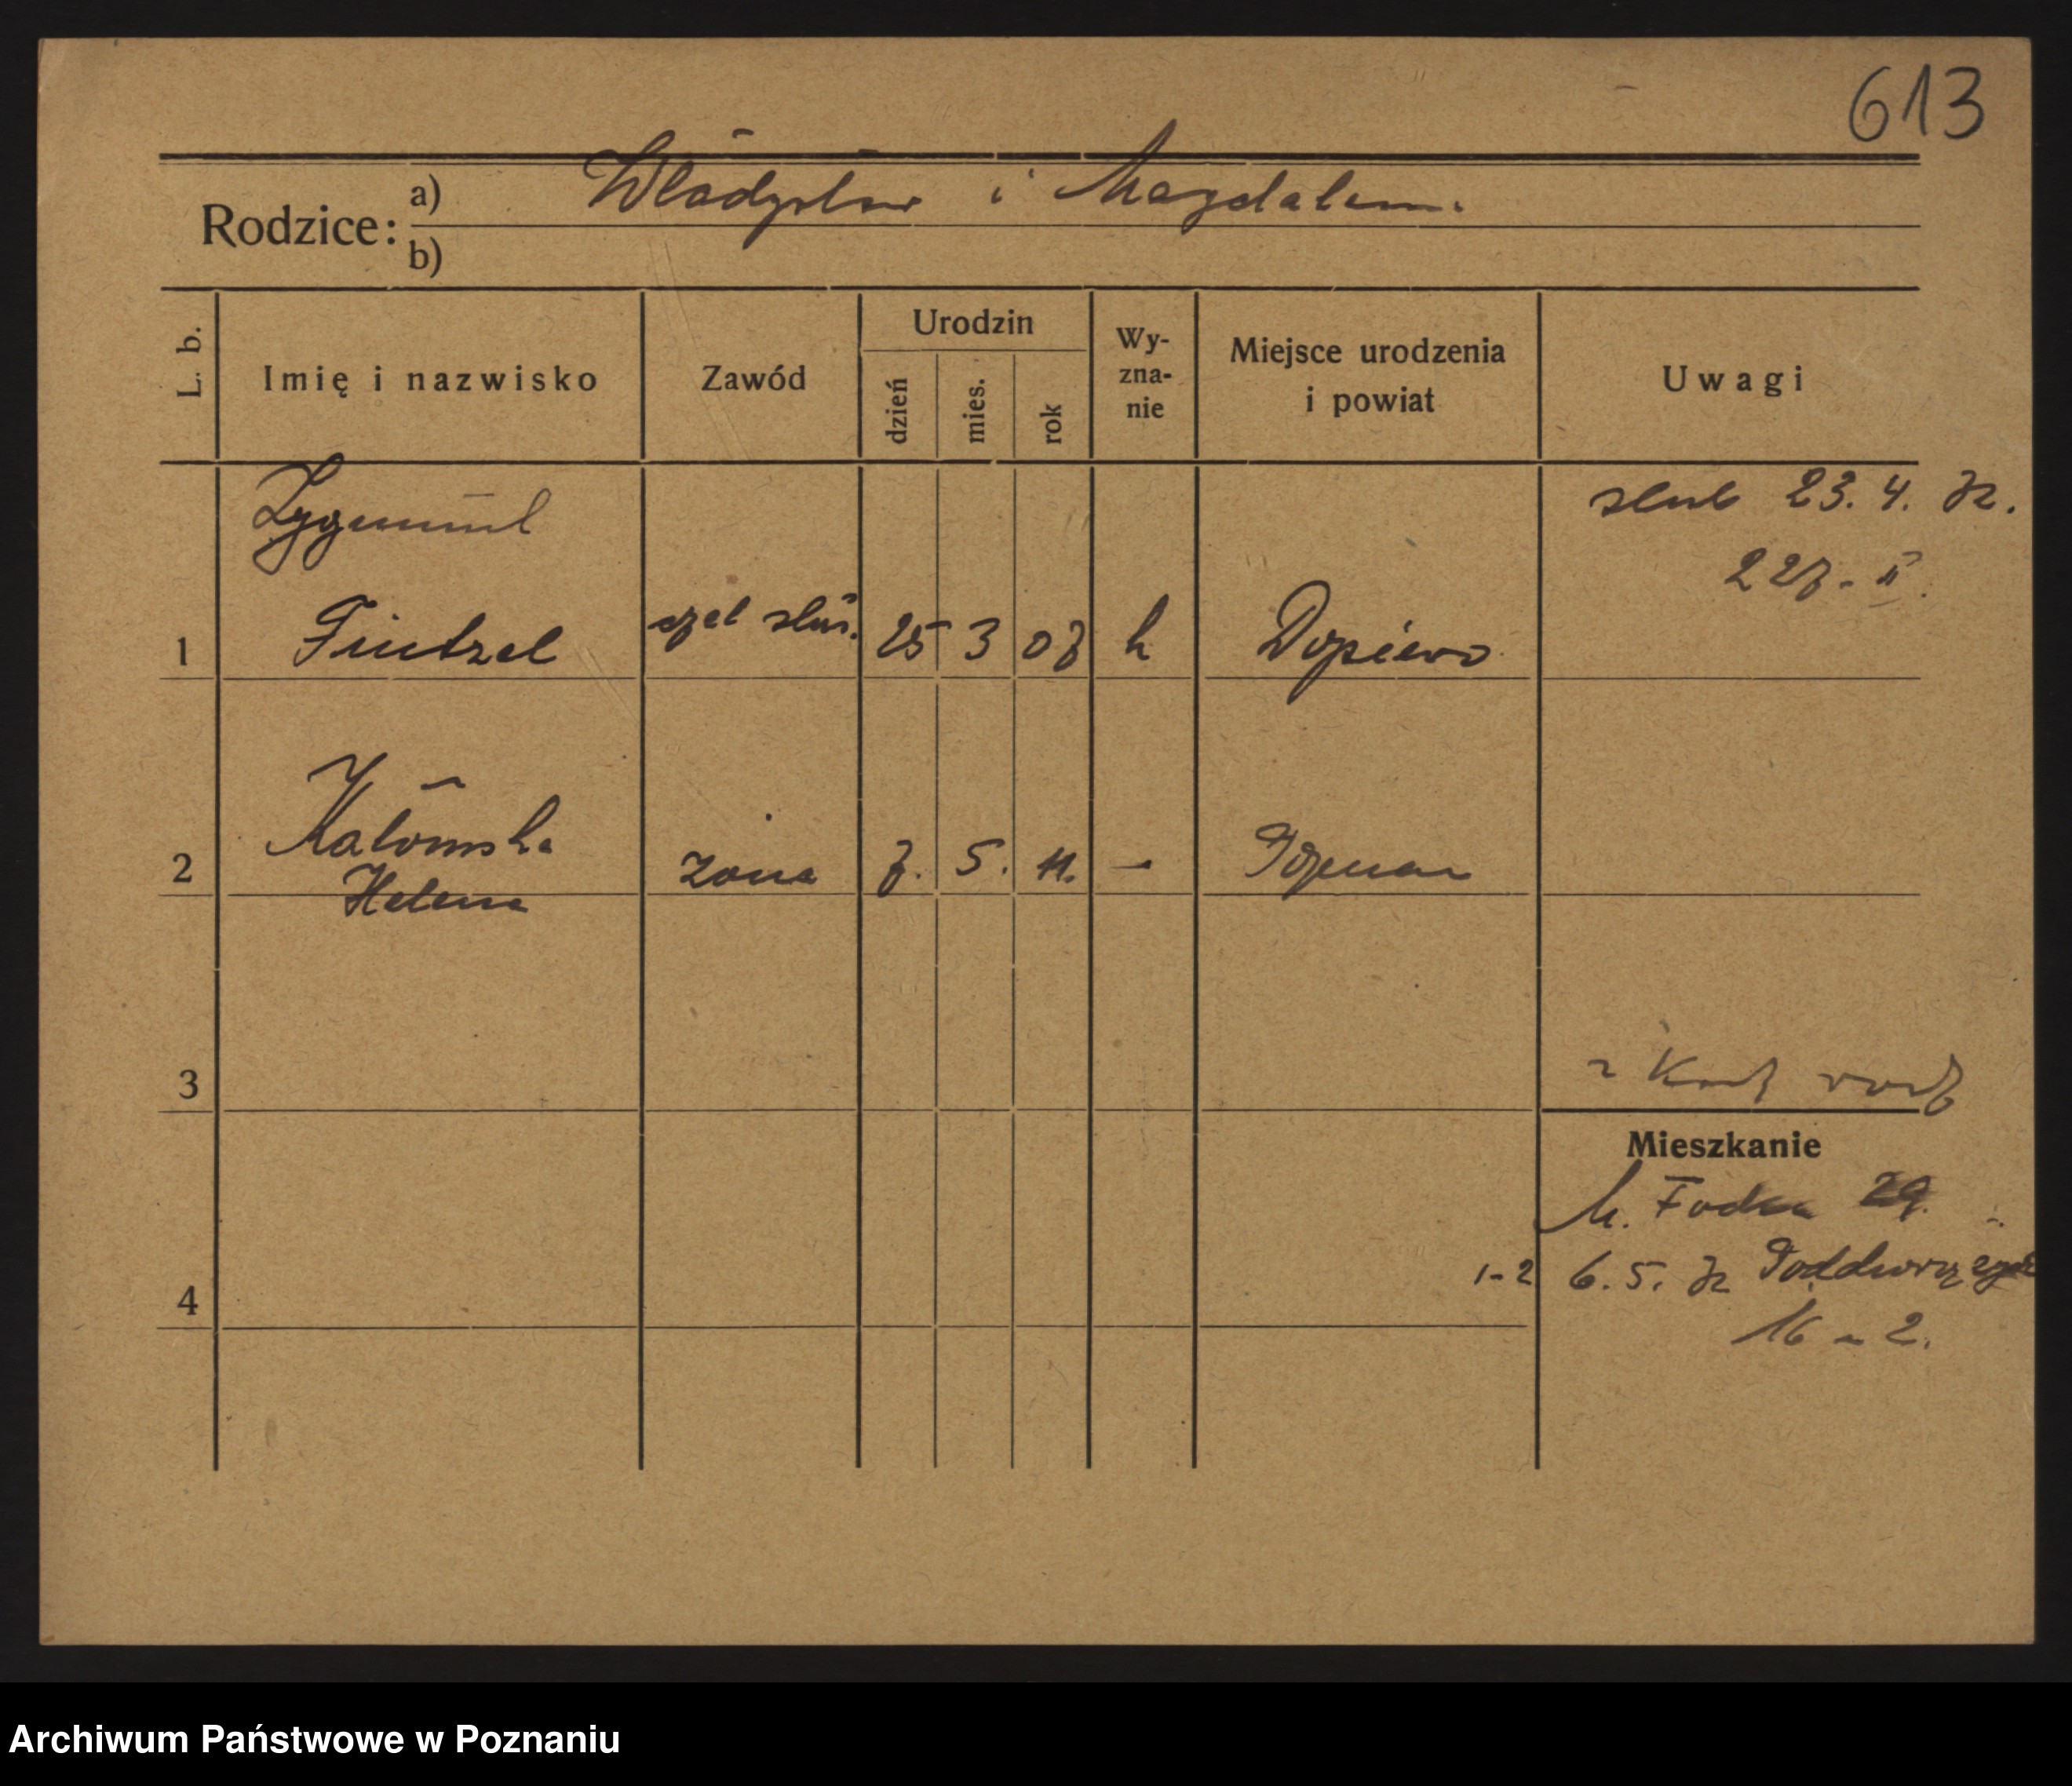 613
Rodzice: a) Władysław i Magdalena
b)
L. b. Imię i nazwisko Zawód Urodzin dzień mies. rok Wy-zna-nie Miejsce urodzenia i powiat Uwagi
Zygmunt ślub 23. 4. 32.
227 - II.
1 czel ślus. 25 3 07 k Dopiewo
2 Helena żona 7. 5. 11. — Poznań
3
Mieszkanie
M. Focha 29.
4 1-2 6. 5. 32
16 - 2.
Archiwum Państwowe w Poznaniu